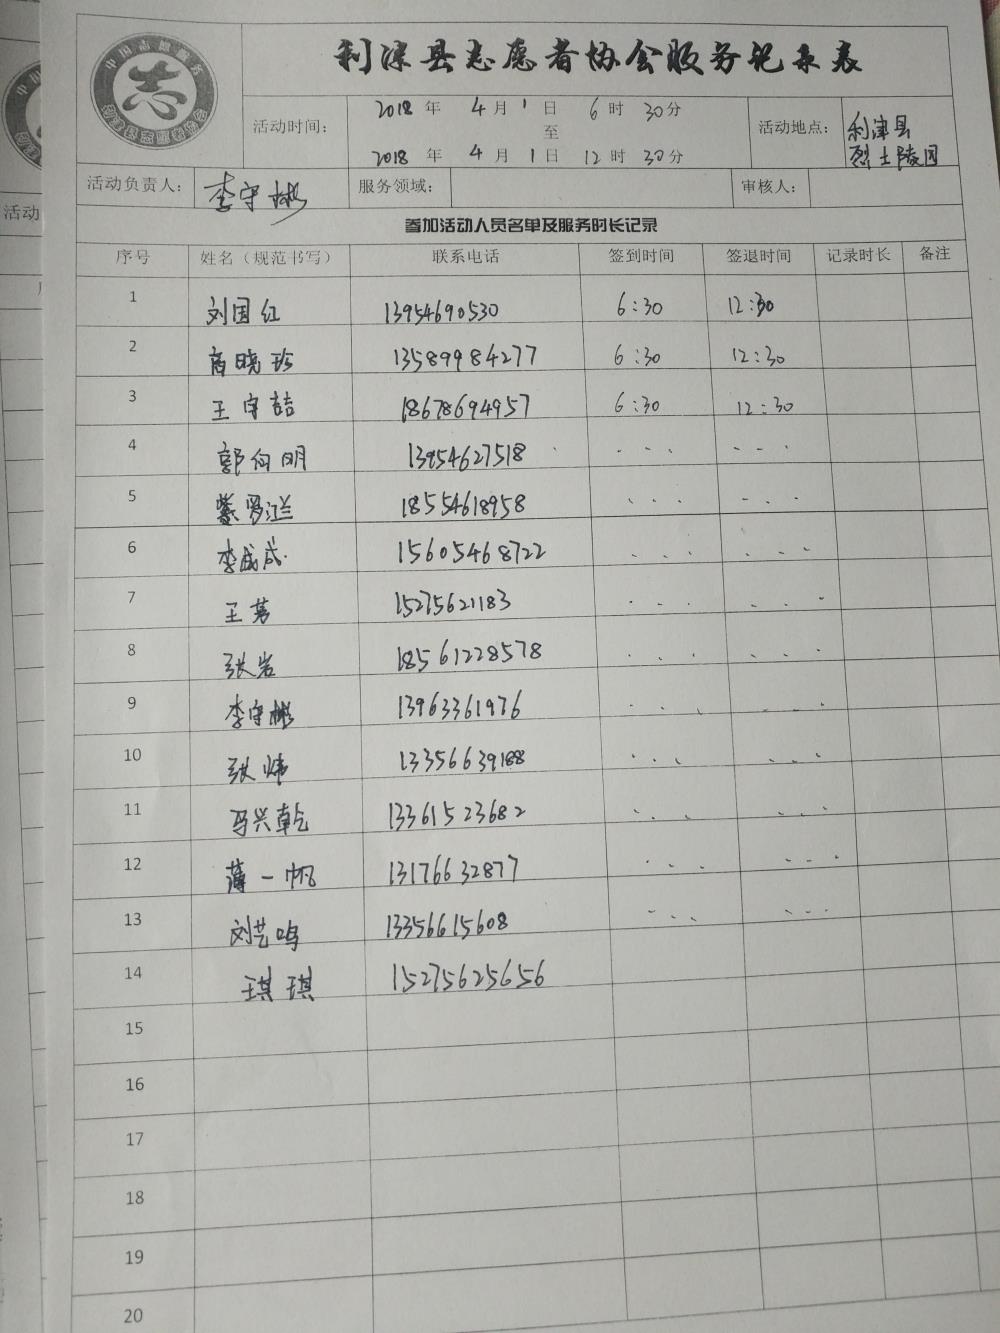 利津县志愿者协会服务记录表
中国志愿服务
活动时间：
2018年 4月1日 6时30分
至
2018年 4月1日 12时30分
活动地点：
利津县
烈士陵园
活动负责人： 李守彬 服务领域： 审核人：
参加活动人员名单及服务时长记录
序号 姓名（规范书写） 联系电话 签到时间 签退时间 记录时长 备注
1 刘国红 13954690530 6:30 12:30
2 商晓珍 13589984277 6:30 12:30
3 王守喆 18678694957 6:30 12:30
4 郭向明 13954627518 ... ...
5 綦学兰 18554618958 ... ...
6 李成成 15605468722 ... ...
7 王芳 15275621183 ... ...
8 张岩 18561228578 ... ...
9 李守彬 13963361976 ... ...
10 张炜 13356639188 ... ...
11 马兴乾 13361523682 ... ...
12 薄一帆 13176632877 ... ...
13 刘艺鸣 13356615608 ... ...
14 王琪琪 15275625656
15
16
17
18
19
20
活动